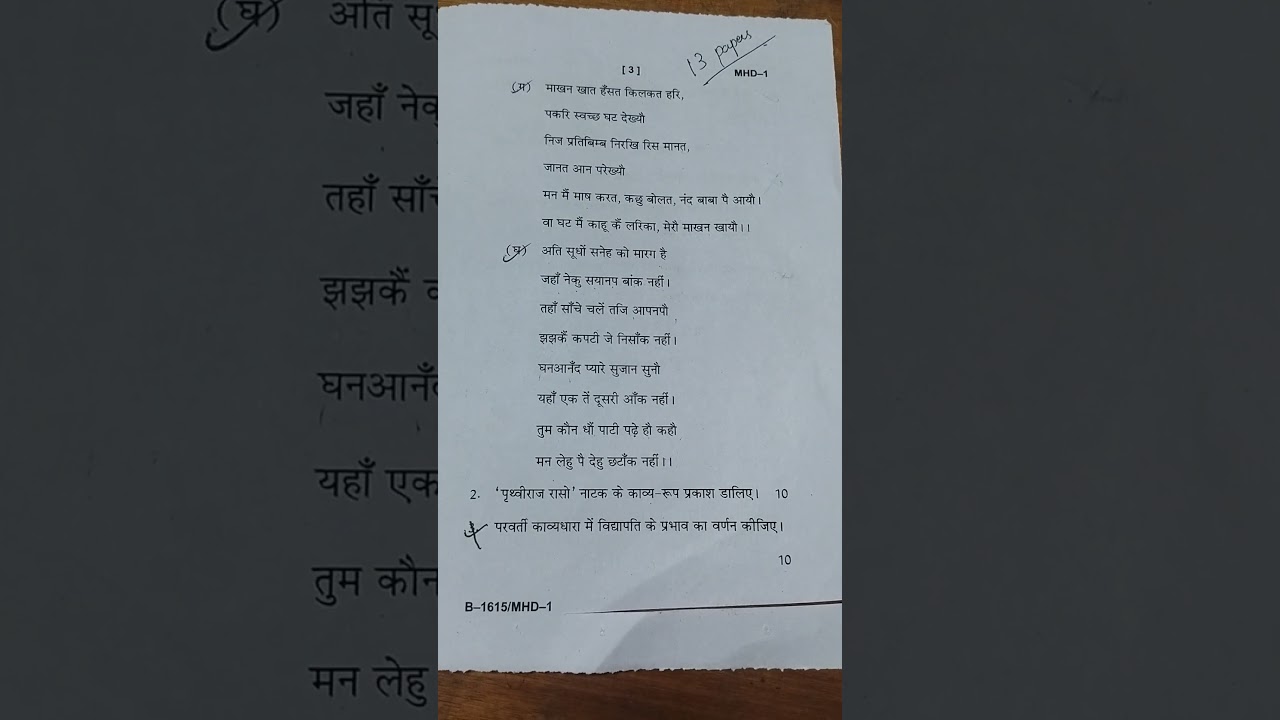 [ 3 ]
13 papers
MHD–1
(ग) माखन खात हँसत किलकत हरि,
पकरि स्वच्छ घट देख्यौ
निज प्रतिबिम्ब निरखि रिस मानत,
जानत आन परेख्यौ
मन मैं माष करत, कछु बोलत, नंद बाबा पै आयौ।
वा घट मैं काहू कैं लरिका, मेरौ माखन खायौ।।
(घ) अति सूधों सनेह को मारग है
जहाँ नेकु सयानप बांक नहीं।
तहाँ साँचे चलें तजि आपनपौ
झझकैं कपटी जे निसाँक नहीं।
घनआनँद प्यारे सुजान सुनौ
यहाँ एक तें दूसरी आँक नहीं।
तुम कौन धौं पाटी पढ़े हौ कहौ
मन लेहु पै देहु छटाँक नहीं।।
2. ‘पृथ्वीराज रासो’ नाटक के काव्य-रूप प्रकाश डालिए। 10
परवर्ती काव्यधारा में विद्यापति के प्रभाव का वर्णन कीजिए।
10
B–1615/MHD–1
(घ) अति सू
जहाँ नेकु
तहाँ साँचे
झझकैं
घनआनँद
यहाँ एक
तुम कौन
मन लेहु